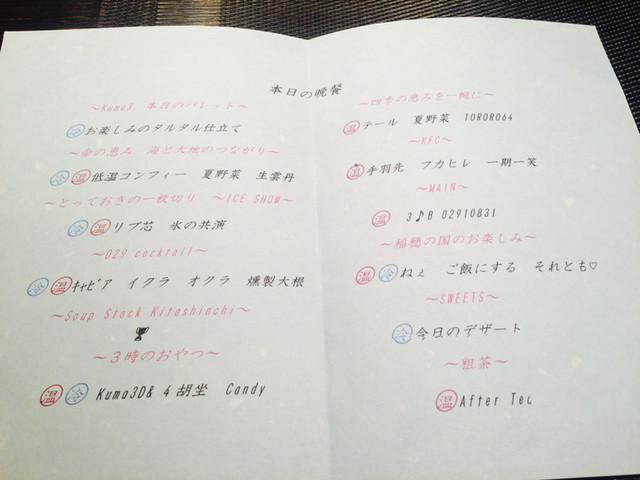 本日の晩餐
～Kuma3 本日のパレット～
冷 お楽しみのタルタル仕立て
～命の恵み 海と大地のつながり～
冷 温 低温コンフィー 夏野菜 生雲丹
～とっておきの一枚切り ～ICE SHOW～
冷 温 リブ芯 氷の共演
～029 cocktail～
冷 温 キャビア イクラ オクラ 燻製大根
～Soup Stock Kitashinchi～
～3時のおやつ～
温 冷 Kuma3D& 4 胡坐 Candy
～四季の恵みを一椀に～
温 テール 夏野菜 TORORO64
～KFC～
温 手羽先 フカヒレ 一期一笑
～MAIN～
温 3♪B 02910831
～稲穂の国のお楽しみ～
温 冷 ねぇ ご飯にする それとも♡
～SWEETS～
冷 今日のデザート
～粗茶～
温 After Tea